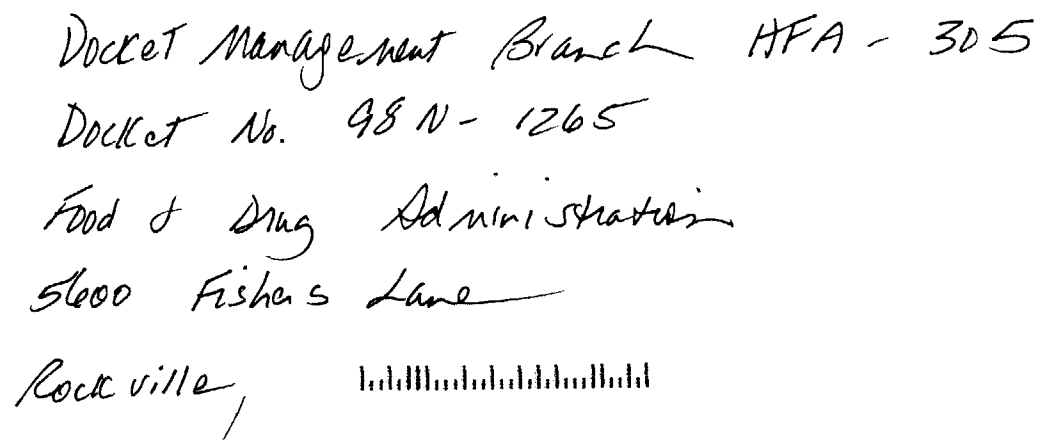 Docket Management Branch HFA - 305
Docket No. 98N - 1265
Food & Drug Administration
5600 Fishers Lane
Rockville,